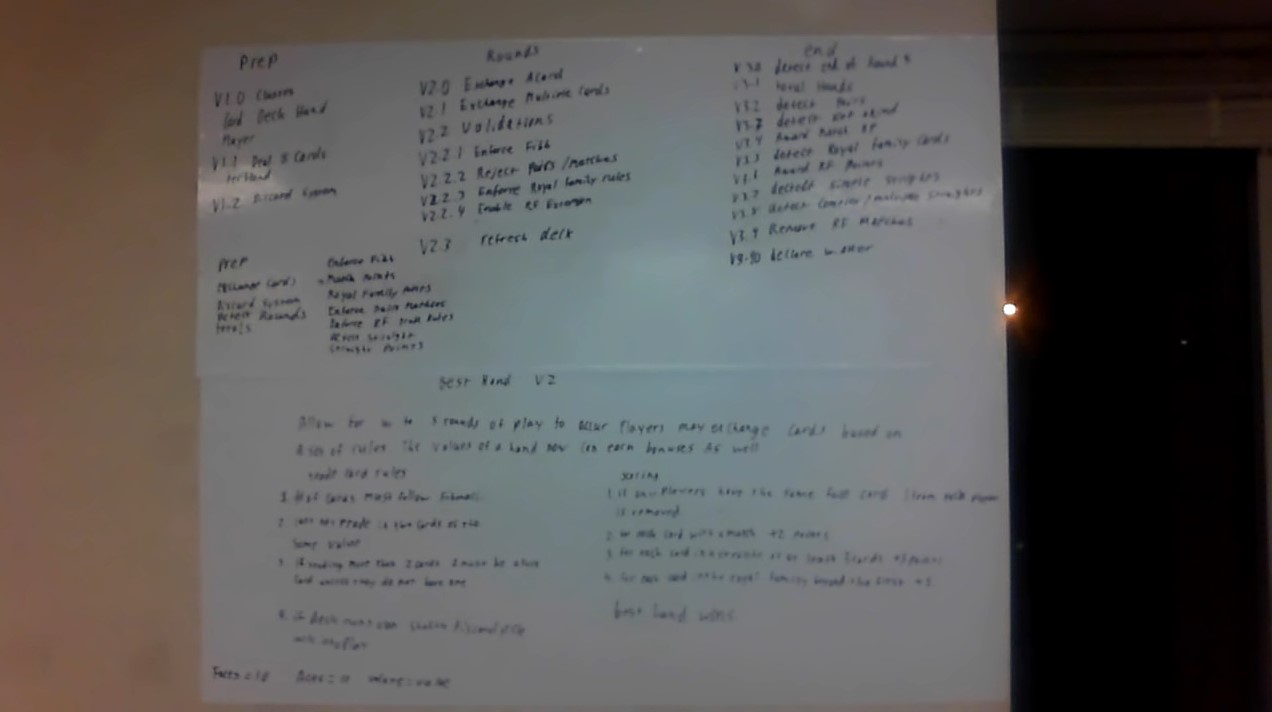 Prep
V1.0 Classes
Card Deck Hand
Player
V1.1 Deal 8 Cards
V1.2 Discard System
Rounds
V2.0 Exchange A card
V2.1 Exchange Multiple Cards
V2.2 Validations
V2.2.1 Enforce Fibb
V2.2.2 Reject Pairs/matches
V2.2.3 Enforce Royal family rules
V2.2.4 Enable RF Exception
V2.3 refresh deck
end
V3.0 detect end of Round
V3.1 total Hands
V3.2 detect Pairs
V3.3 detect
V3.4 Award Match
detect Royal family Cards
Award RF Points
detect simple straights
detect Complex/multiple Straights
V3.9 Remove RF Matches
declare winner
Prep
exchange Cards
Discard System
Detect Rounds
totals
Enforce Fibb
Match Points
Royal Family Points
Enforce Matches
Enforce RF Rules
detect Straight
Straight Points
Best Hand V2
Allow for up to 5 rounds of play to occur Players may exchange Cards based on
A set of rules. The values of a hand now can earn bonuses As well
trade Card rules
1. # of Cards must follow
2. can not trade in two Cards of the
same value
3. if trading more than 2 cards 1 must be a face
Card unless they do not have one
4. if deck runs out shuffle discard pile
scoring
1. if any Players have the same face card from each player
is removed
2. for each card with a match +2 Points
3. for each card in a straight of at least 3 cards +3 Points
4. for each card in the royal family beyond the first
best hand wins
Faces = 10 Aces = 11 value = value